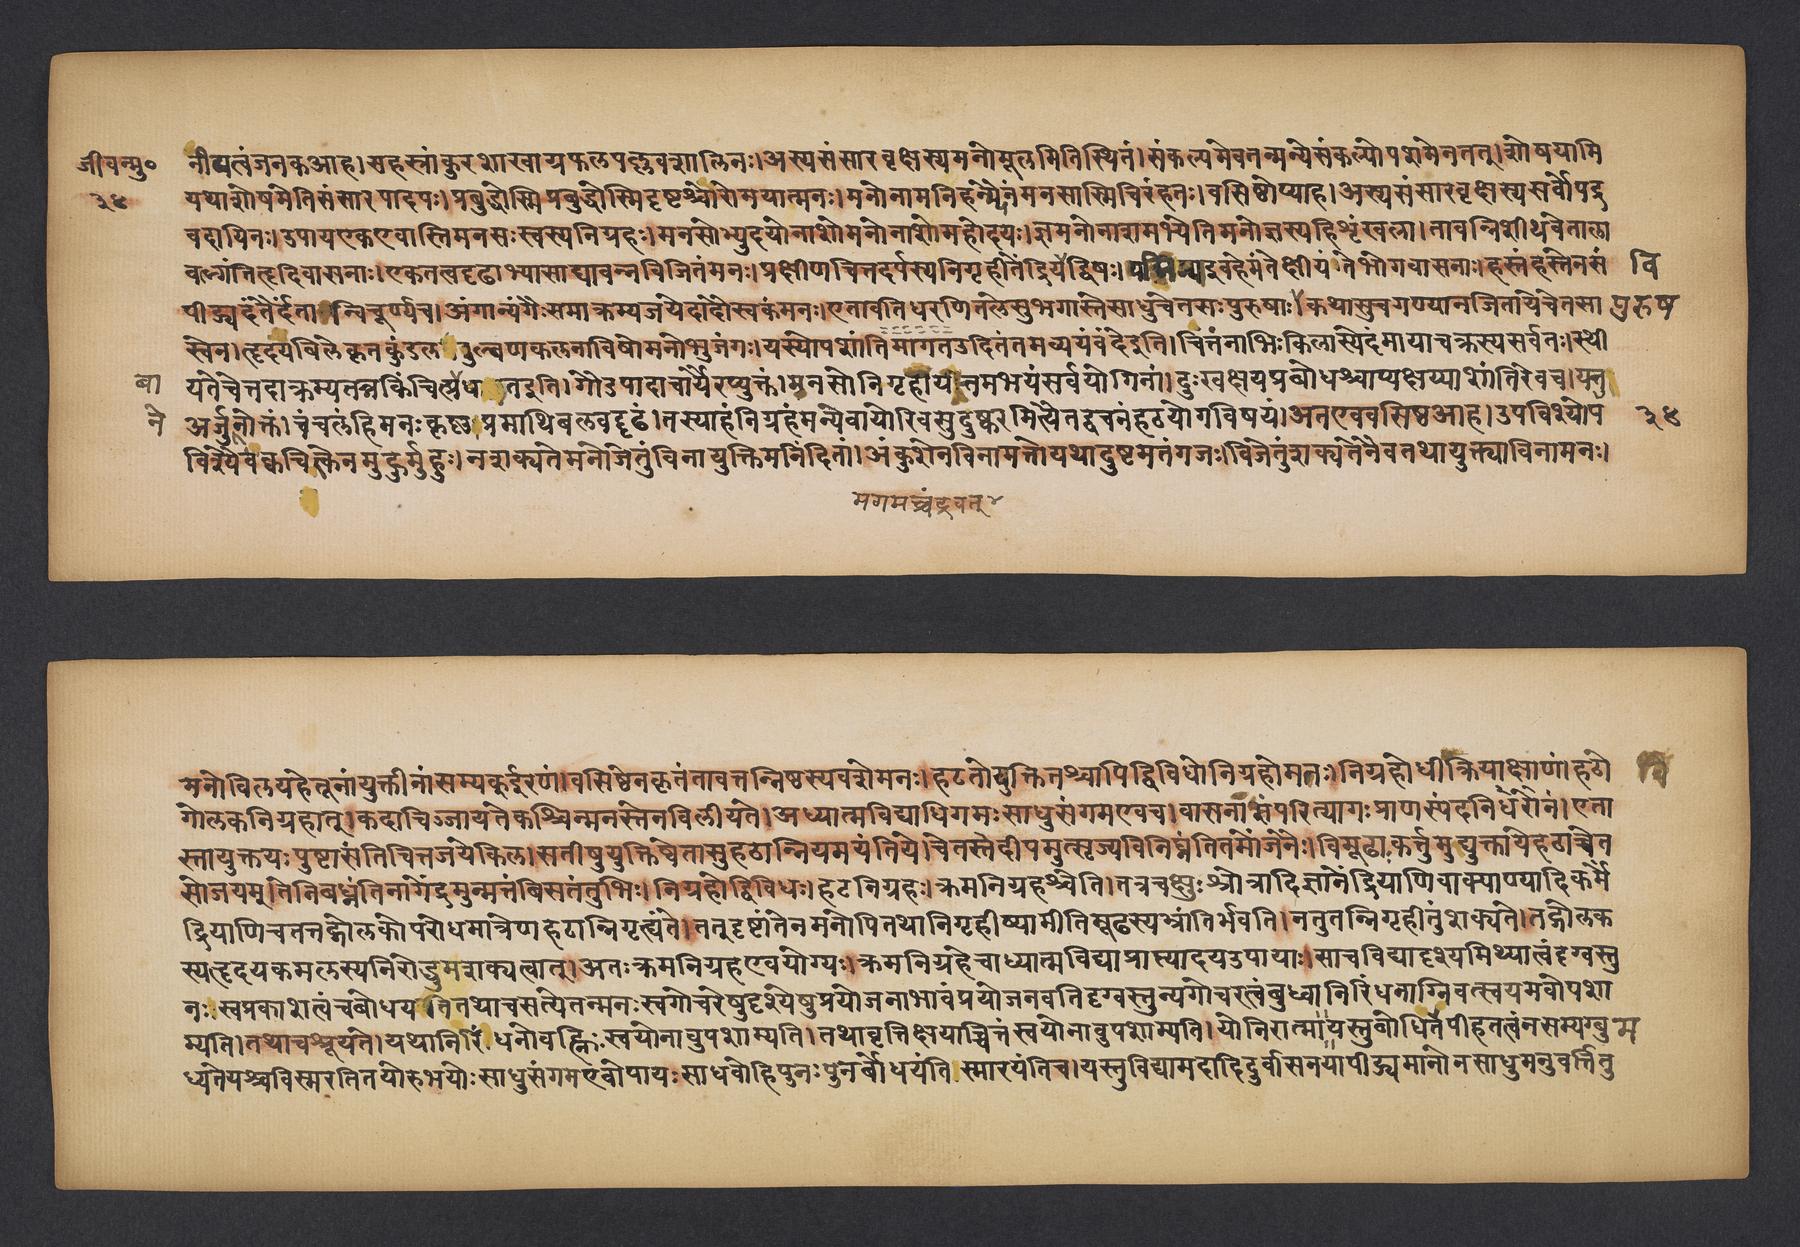 जीवन्मु०
३४
नीद्यत्वंजनकआह।सहस्रांकुरशाखाग्रफलपल्लवशालिनः।अस्यसंसारवृक्षस्यमनोमूलमितिस्थितं।संकल्पमेवतन्मन्येसंकल्पोपशमेनतत्।शोषयामि
यथाशोषमेतिसंसारपादपः।प्रबुद्धोस्मिप्रबुद्धोस्मिदृष्टश्चौरोमयात्मनः।मनोनामनिहन्म्येनंमनसास्मिचिरंहतः।वसिष्ठोप्याह।अस्यसंसारवृक्षस्यसर्वोपद्र
वदायिनः।उपायएकएवास्तिमनसःस्वस्यनिग्रहः।मनसोभ्युदयोनाशोमनोनाशोमहोदयः।ज्ञमनोनाशमभ्येतिमनोज्ञस्यहिशृंखला।तावन्निशीथवेताला
वल्गंतिहृदिवासनाः।एकतत्वदृढाभ्यासाद्यावन्नविजितंमनः।प्रक्षीणचित्तदर्पस्यनिगृहीतेंद्रियद्विषः।पद्मिन्यइवहेमंतेक्षीयंतेभोगवासनाः।हस्तंहस्तेनसं
वि
पीड्यदंतैर्दंता न्विचूर्ण्यच।अंगान्यंगैःसमाक्रम्यजयेदादौस्वकंमनः।एतावतिधरणितलेसुभगास्तेसाधुचेतसःपुरुषाः।कथासुचगण्यानजितायेचेतसा
पुरुष
स्वेन।हृदयबिलेकृतकुंडल उल्बणकलनाविषोमनोभुजंगः।यस्योपशांतिमागतउदितंतमव्ययंवंदेइति।चित्तंनाभिःकिलास्येदंमायाचक्रस्यसर्वतः।स्थी
बा
यतेचेत्तदाक्रम्यतन्नकिंचित्प्रधा तइति।गौडपादाचार्यैरप्युक्तं।मनसोनिगृहायत्तमभयंसर्वयोगिनां।दुःखक्षयप्रबोधश्चाप्यक्षय्याशांतिरेवच।यत्तु
ने
अर्जुनोक्तं।चंचलंहिमनःकृष्ण प्रमाथिबलवद्दृढं।तस्याहंनिग्रहंमन्येवायोरिवसुदुष्करमित्येतद्वचनंहठयोगविषयं।अतएववसिष्ठआह।उपविश्योप
३४
विश्यैवैकचित्तकेनमुहुर्मुहुः।नशक्यतेमनोजेतुंविनायुक्तिमनिंदितां।अंकुशेनविनामत्तोयथादुष्टमतंगजः।विजेतुंशक्यतेनैवतथायुक्त्याविनामनः।
मनोविलयहेतूनांयुक्तीनांसम्यकुईरणं।वसिष्ठेनकृतंतावत्तन्निष्ठस्यवशेमनः।हटतोयुक्तितश्चापिद्विविधोनिग्रहोमतः।निग्रहोधीक्रियाक्षाणांहठो
गोलकनिग्रहात्।कदाचिज्जायतेकश्चिन्मनस्तेनविलीयते।अध्यात्मविद्याधिगमःसाधुसंगमएवच।वासनासंपरित्यागःप्राणस्पंदनिरोधनं।एता
स्तायुक्तयःपुष्टासंतिचित्तजयेकिल।सतीषुयुक्तिष्वेतासुहठान्नियमयंतिये।चेतस्तेदीपमुत्सृज्यविनिघ्नंतितमोंजनैः।विमूढाकर्त्तुमुद्युक्तायेहठाच्चेत
सोजयम्।तेनिबध्नंतिनागेंद्रमुन्मत्तंबिसतंतुभिः।निग्रहोद्विविधः।हटनिग्रहः।क्रमनिग्रहश्चेति।तत्रचक्षुःश्रोत्रादिज्ञानेंद्रियाणिवाक्पाण्यादिकर्में
द्रियाणिचतत्तद्गोलकोपरोधमात्रेणहठान्निगृह्यंते।तद्दृष्टांतेनमनोपितथानिगृहीष्यामीतिमूढस्यभ्रांतिर्भवति।नतुतन्निगृहीतुंशक्यते।तद्गोलक
स्यहृदयकमलस्यनिरोद्धुमशक्यत्वात्।अतःक्रमनिग्रहएवयोग्यः।क्रमनिग्रहेचाध्यात्मविद्याप्राप्त्यादयउपायाः।साचविद्यादृश्यमिथ्यात्वंदृग्वस्तु
नःस्वप्रकाशत्वंचबोधयतितथाचसत्येतन्मनःस्वगोचरेषुदृश्येषुप्रयोजनाभावंप्रयोजनवतिदृग्वस्तुन्यगोचरत्वंबुध्वानिरिंधनाग्निवत्स्वयमेवोपशा
म्यति।तथाचश्रूयते।यथानिरिंधनोवह्निःस्वयोनावुपशाम्यति।तथावृत्तिक्षयाच्चित्तंस्वयोनावुपशाम्यति।योनिरात्मायस्तुबोधितेपीहतत्वंनसम्यग्बु
म
ध्यतेयश्चविस्मरतितयोरुभयोःसाधुसंगमएवोपायःसाधवोहिपुनःपुनर्बोधयंतिस्मारयंतिच।यस्तुविद्यामदादिदुर्वासनयापीड्यमानोनसाधुमनुवर्त्तितु